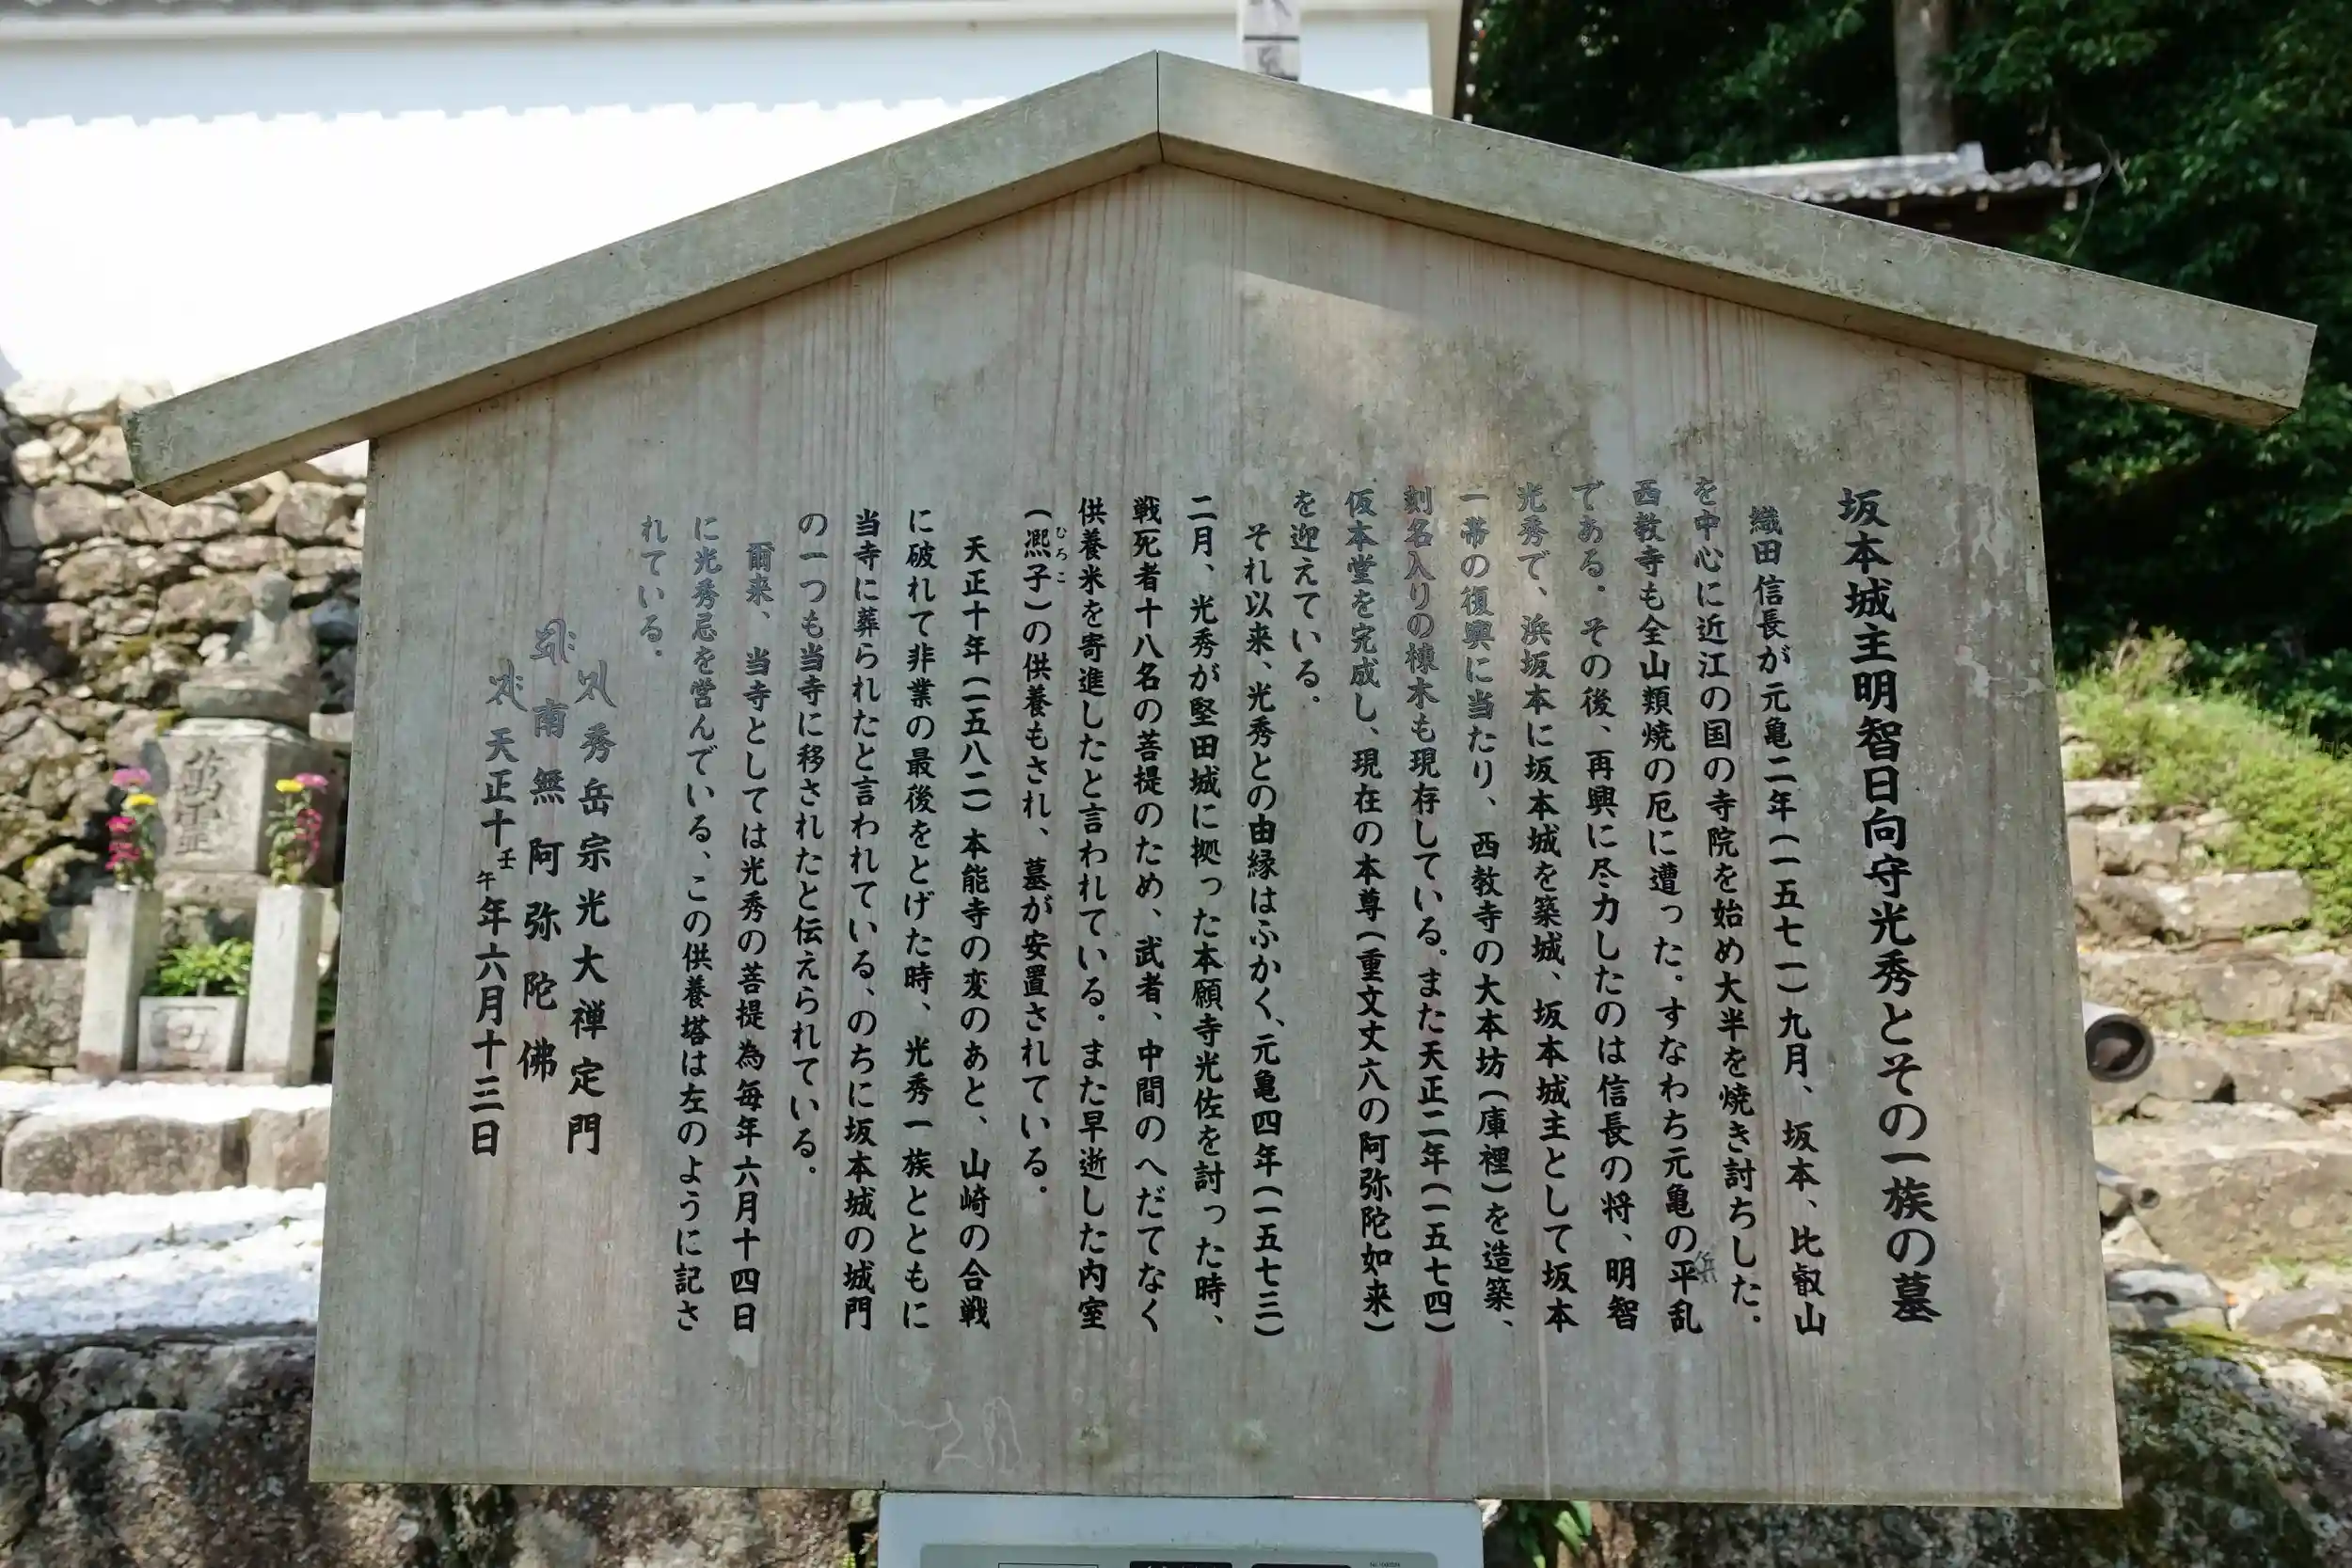 坂本城主明智日向守光秀とその一族の墓
織田信長が元亀二年(一五七一)九月、坂本、比叡山
を中心に近江の国の寺院を始め大半を焼き討ちした。
西教寺も全山類焼の厄に遭った。すなわち元亀の平乱
である。その後、再興に尽力したのは信長の将、明智
光秀で、浜坂本に坂本城を築城、坂本城主として坂本
一帯の復興に当たり、西教寺の大本坊(庫裡)を造築、
刻名入りの棟木も現存している。また天正二年(一五七四)
仮本堂を完成し、現在の本尊(重文丈六の阿弥陀如来)
を迎えている。
それ以来、光秀との由縁はふかく、元亀四年(一五七三)
二月、光秀が堅田城に拠った本願寺光佐を討った時、
戦死者十八名の菩提のため、武者、中間のへだてなく
供養米を寄進したと言われている。また早逝した内室
(凞子)の供養もされ、墓が安置されている。
ひろこ
天正十年(一五八二)本能寺の変のあと、山崎の合戦
に破れて非業の最後をとげた時、光秀一族とともに
当寺に葬られたと言われている、のちに坂本城の城門
の一つも当寺に移されたと伝えられている。
爾来、当寺としては光秀の菩提為毎年六月十四日
に光秀忌を営んでいる、この供養塔は左のように記さ
れている。
秀岳宗光大禅定門
南無阿弥陀佛
天正十壬午年六月十三日
萬霊